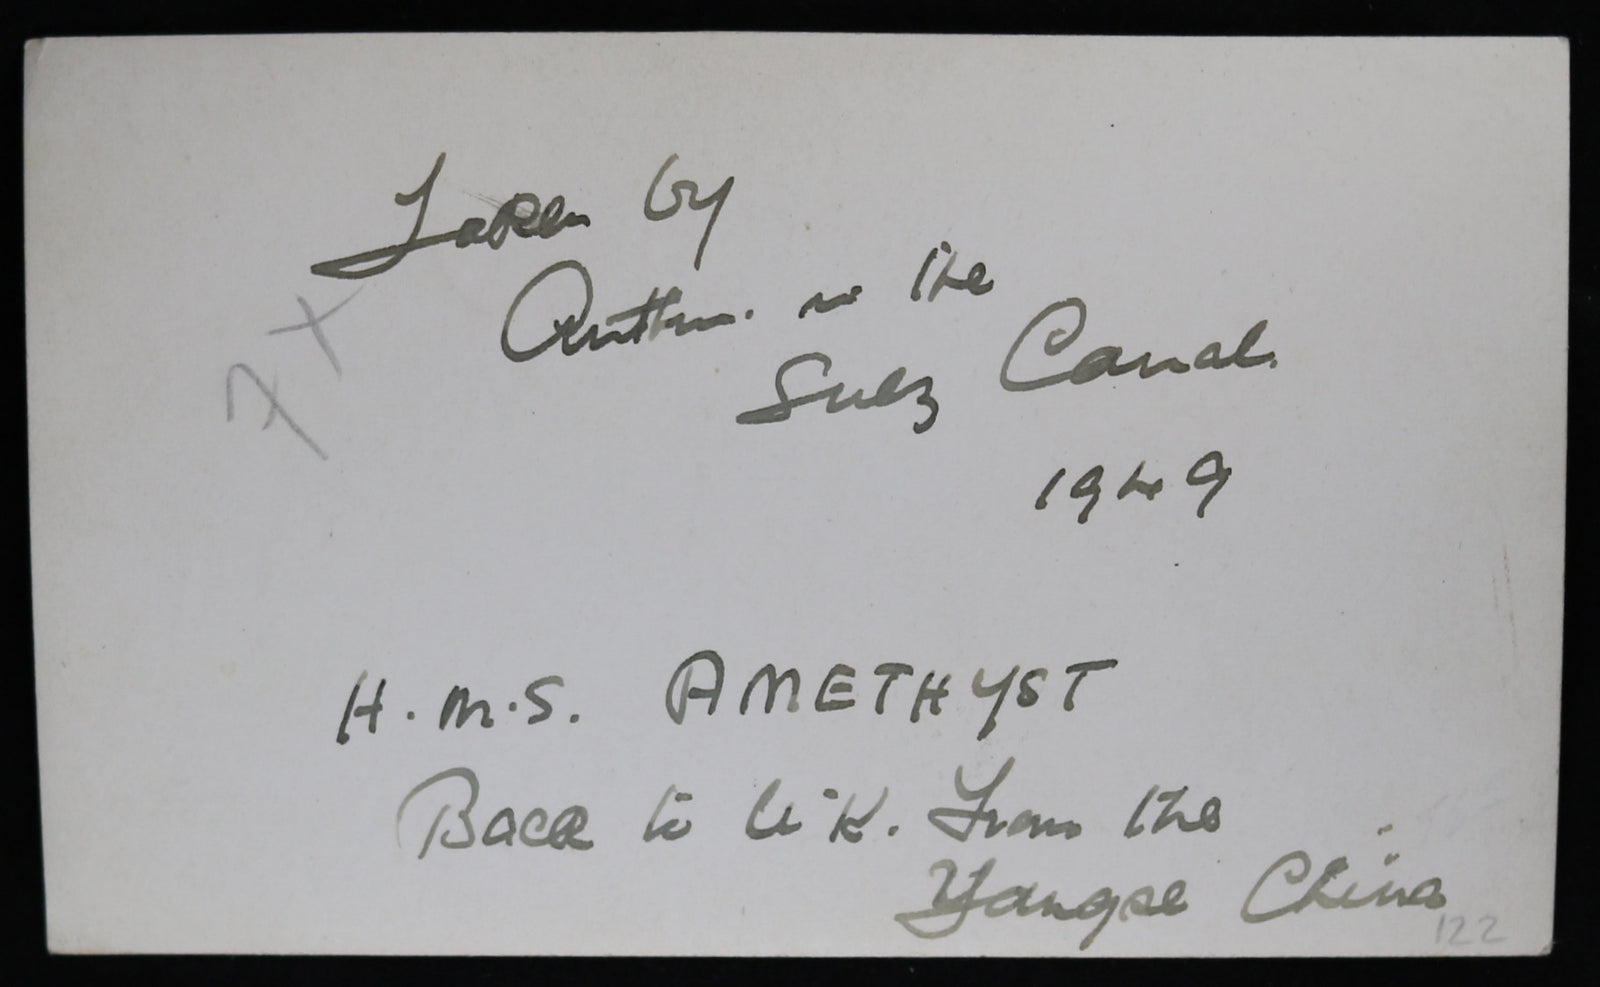 Taken by
Arthur. in the
Suez Canal.
1949
7 X
H.M.S. AMETHYST
Back to U.K. From the
Yangse China
122